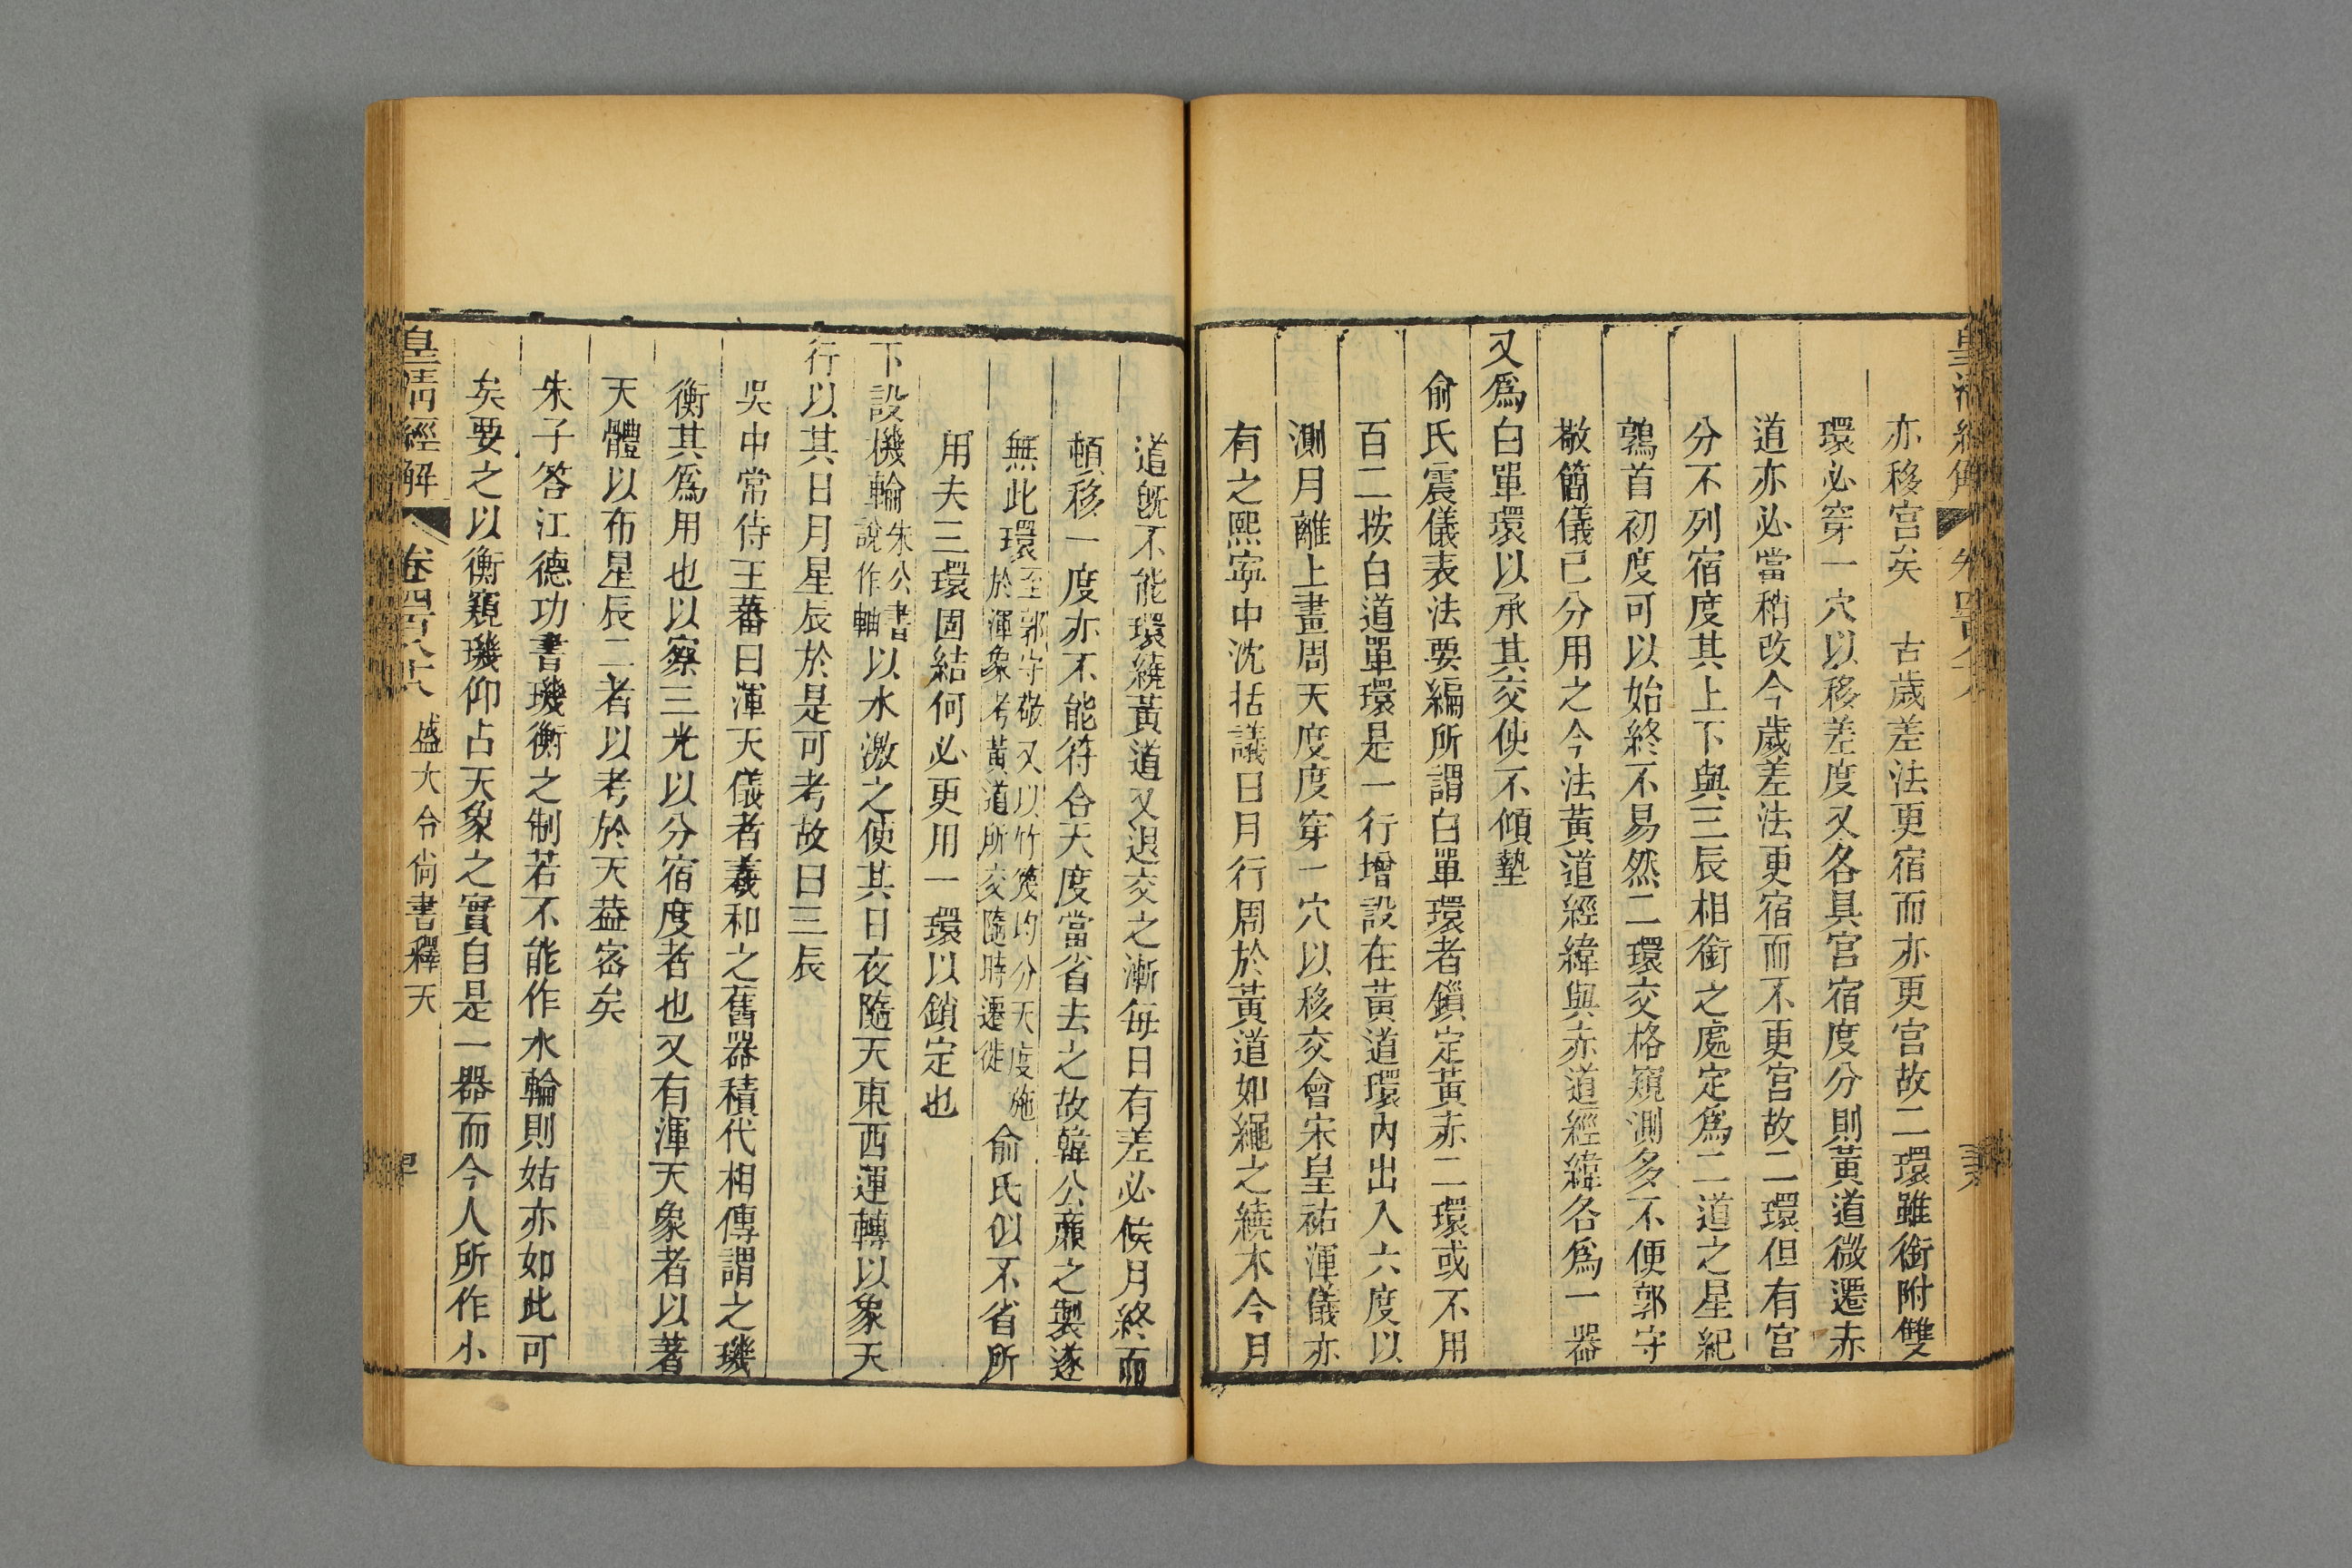 亦移宮矣　古歲差法更宿而亦更宮故二環雖銜附雙
環必穿一穴以移差度又各具宮宿度分則黃道微遷赤
道亦必當稍改今歲差法更宿而不更宮故二環但有宮
分不列宿度其上下與三辰相銜之處定爲二道之星紀
鶉首初度可以始終不易然二環交格窺測多不便郭守
敬簡儀已分用之今法黃道經緯與赤道經緯各爲一器
又爲白單環以承其交使不傾墊
俞氏震儀表法要編所謂白單環者鎖定黃赤二環或不用
百二按白道單環是一行增設在黃道環內出入六度以
測月離上畫周天度度穿一穴以移交會宋皇祐渾儀亦
有之熙寧中沈括議日月行周於黃道如繩之繞木今月
道旣不能環繞黃道又退交之漸每日有差必候月終而
頓移一度亦不能符合天度當省去之故韓公廉之製遂
無此環至郭守敬又以竹篾均分天度施
於渾象考黃道所交隨時遷徙俞氏似不省所
用夫三環固結何必更用一環以鎖定也
下設機輪朱公書
說作軸以水激之使其日夜隨天東西運轉以象天
行以其日月星辰於是可考故曰三辰
吳中常侍王蕃曰渾天儀者羲和之舊器積代相傳謂之璣
衡其爲用也以察三光以分宿度者也又有渾天象者以著
天體以布星辰二者以考於天葢密矣
朱子答江德功書璣衡之制若不能作水輪則姑亦如此可
矣要之以衡窺璣仰占天象之實自是一器而今人所作小
皇清經解
卷四百八十六
盛大令尚書釋天